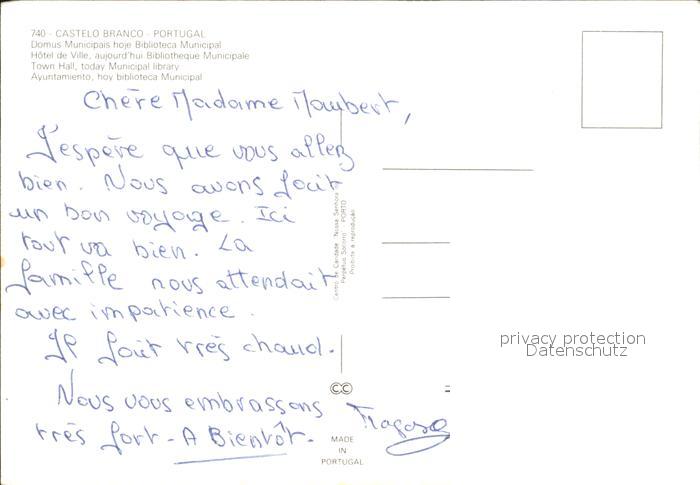 740 - CASTELO BRANCO - PORTUGAL
Domus Municipais hoje Biblioteca Municipal
Hôtel de Ville, aujourd'hui Bibliotheque Municipale
Town Hall, today Municipal library
Ayuntamiento, hoy biblioteca Municipal
Chère Madame Maubert,
J'espère que vous allez
bien. Nous avons fait
un bon voyage. Ici
tout va bien. La
famille nous attendait
avec impatience.
Il fait très chaud.
Nous vous embrassons
très fort - A Bientôt.
Centro de Caridade "Nossa Senhora
Perpétuo Socorro" PORTO
Proibida a reprodução
MADE
IN
PORTUGAL
privacy protection
Datenschutz